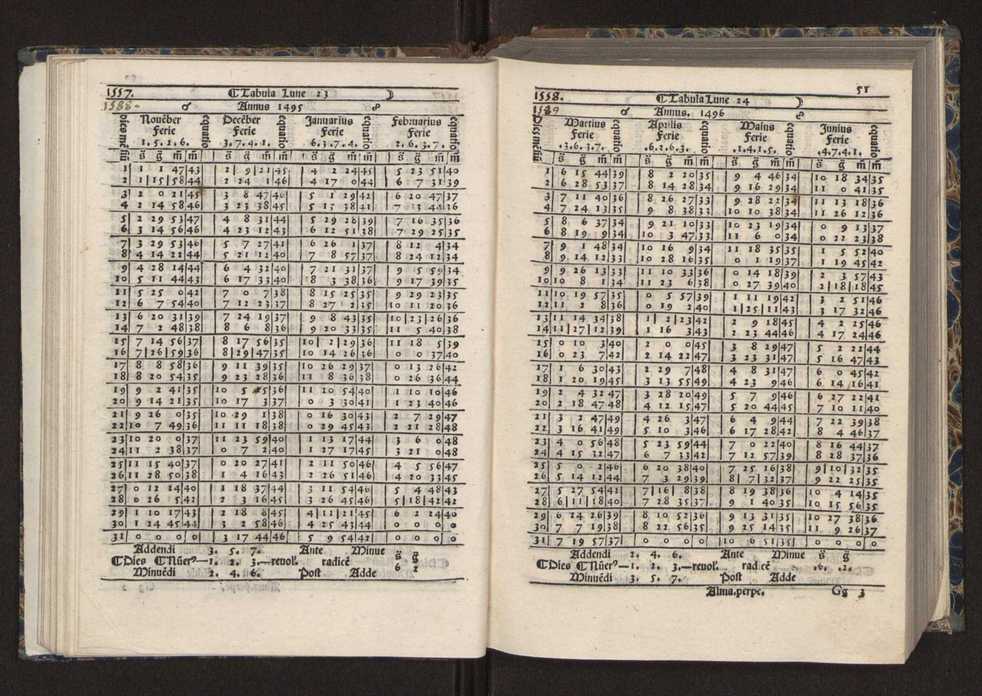 1557. ℂ Tabula Lune 23 ☽
1588- ♂ Annus 1495 ☍
Nouēber Decēber Januarius Februarius
Ferie Ferie Ferie Ferie
1.5.2.6. 3.7.4.1. 6.3.7.4. 2.6.3.7.
s g m m s g m m s g m m s g m m
1 1 1 47 43 2 9 21 45 4 2 24 45 5 23 51 40
2 1 15 58 44 2 24 1 46 4 17 0 44 6 7 31 39
3 2 0 21 45 3 8 47 46 5 1 29 42 6 20 47 37
4 2 14 58 46 3 23 38 45
5 2 29 53 47 4 8 31 44 5 29 28 39 7 16 35 36
6 3 14 56 46 4 23 12 43 6 12 51 38 7 29 25 35
7 3 29 53 46 5 7 27 41 6 26 1 37 8 12 4 34
8 4 14 21 44 5 21 12 40 7 8 57 37 8 24 12 34
9 4 28 14 44 6 4 31 40 7 21 31 37 9 5 59 34
10 5 11 44 43 6 17 33 40 8 3 38 36 9 17 39 35
11 5 25 0 42 7 0 7 38 8 15 25 35 9 29 23 35
12 6 7 54 40 7 12 23 37 8 27 2 35 10 11 20 36
13 6 20 31 39 7 24 19 37 9 8 43 35 10 23 26 36
14 7 2 48 38 8 6 8 36 9 20 33 35 11 5 40 38
15 7 14 56 37 8 17 56 35 10 2 29 36 11 18 5 39
16 7 26 59 36 8 29 47 35 10 14 26 36 0 0 37 40
17 8 8 58 36 9 11 39 35 10 26 29 37 0 13 26 42
18 8 20 54 35 9 23 28 36 11 8 36 38 0 26 36 44
19 9 2 41 35 10 5 25 36 11 20 54 40 1 10 10 46
20 9 14 21 35 10 17 3 37 0 3 30 41 1 23 40 46
21 9 26 0 35 10 29 1 38 0 16 30 43 2 7 29 47
22 10 7 49 36 11 11 18 38 0 29 45 43 2 21 28 48
23 10 20 0 37 11 23 59 40 1 13 17 44 3 6 0 48
24 11 2 38 37 0 7 2 40 1 27 17 45 3 21 0 48
25 11 15 40 37 0 20 27 41 2 11 50 46 4 5 56 47
26 11 28 50 38 1 4 16 43 2 26 51 46 4 20 33 45
27 0 12 14 40 1 18 37 44 3 11 54 46 5 4 48 43
28 0 26 5 42 2 3 16 45 3 26 45 46 5 18 42 42
29 1 10 17 43 2 18 8 45 4 11 21 45 6 2 24 40
30 1 24 45 44 3 2 58 46 4 25 43 44 0 0 0 0
31 0 0 0 0 3 17 44 46 5 9 54 42 0 0 0 0
Addendi 3. 5. 7. Ante Minue g g
ℂDies ℂNūer⁹—1. 2. 3.—reuol. radicē
Minuēdi 2. 4. 6. Post Adde 6 2
51
1558. ℂ Tabula Lune 24 ☽
1589 ♂ Annus. 1496 ☍
Martius Aprilis Maius Junius
Ferie Ferie Ferie Ferie
.3.6.3.7. .6.2.6.3. .1.4.1.5. .4.7.4.1.
s g m m s g m m s g m m s g m m
1 6 15 44 39 8 2 20 35 9 4 46 34 10 18 34 35
2 6 28 53 37 8 14 28 34 9 16 29 34 11 0 41 35
3 7 11 40 36 8 26 27 33 9 28 22 34 11 13 18 36
4 7 24 13 35 9 8 38 33 10 10 38 34 11 26 12 36
5 8 6 37 34 9 21 10 33 10 23 19 34 0 9 13 37
6 8 19 9 34 10 3 47 33 11 6 0 34 0 22 23 38
7 9 1 48 34 10 16 9 34 11 18 35 35 1 5 52 40
8 9 14 12 33 10 28 16 35 0 1 19 37 1 19 45 42
9 9 26 13 33 11 10 33 36 0 14 18 39 2 3 57 43
10 10 8 1 34 11 23 6 38 0 27 39 40 2 18 18 45
11 10 19 57 35 0 5 57 39 1 11 19 42 3 2 51 46
12 11 2 8 36 0 19 2 40 1 25 11 43 3 17 32 46
13 11 14 34 38 1 2 23 42 2 9 18 45 4 2 25 46
14 11 27 12 39 1 16 3 43 2 23 44 46 4 17 24 46
15 0 10 3 40 2 0 0 45 3 8 29 47 5 2 22 44
16 0 23 7 42 2 14 22 47 3 23 31 47 5 16 47 43
17 1 6 30 43 2 29 7 48 4 8 31 47 6 0 45 42
18 1 20 19 45 3 13 55 49 4 23 9 46 6 14 16 41
19 2 4 32 47 3 28 20 49 5 7 9 46 6 27 22 41
20 2 18 47 48 4 12 15 47 5 20 44 45 7 10 11 40
21 3 2 47 49 4 26 3 47 6 4 9 44 7 22 39 38
22 3 16 41 49 5 10 3 46 6 17 28 42 8 4 46 37
23 4 0 56 48 5 23 59 44 7 0 22 40 8 16 44 37
24 4 15 32 47 6 7 33 42 7 12 57 39 8 28 37 36
25 5 0 2 46 6 20 38 40 7 25 16 38 9 10 32 35
26 5 14 12 44 7 3 29 39 8 7 32 37 9 22 25 35
27 5 27 54 41 7 16 8 38 8 19 38 36 10 4 14 35
28 6 11 18 40 7 28 35 37 9 1 40 35 10 15 56 35
29 6 24 26 39 8 10 52 36 9 13 31 35 10 27 38 36
30 7 7 19 38 8 22 56 35 9 25 14 35 11 9 26 37
31 7 19 57 37 0 0 0 0 10 6 51 35 0 0 0 0
Addendi 2. 4. 6. Ante Minue g g
ℂDies ℂNūer⁹—1. 2. 3.—reuol. radicē .6. .2.
Minuēdi 3. 5. 7. Post Adde
Alma.perpe. Gg 3